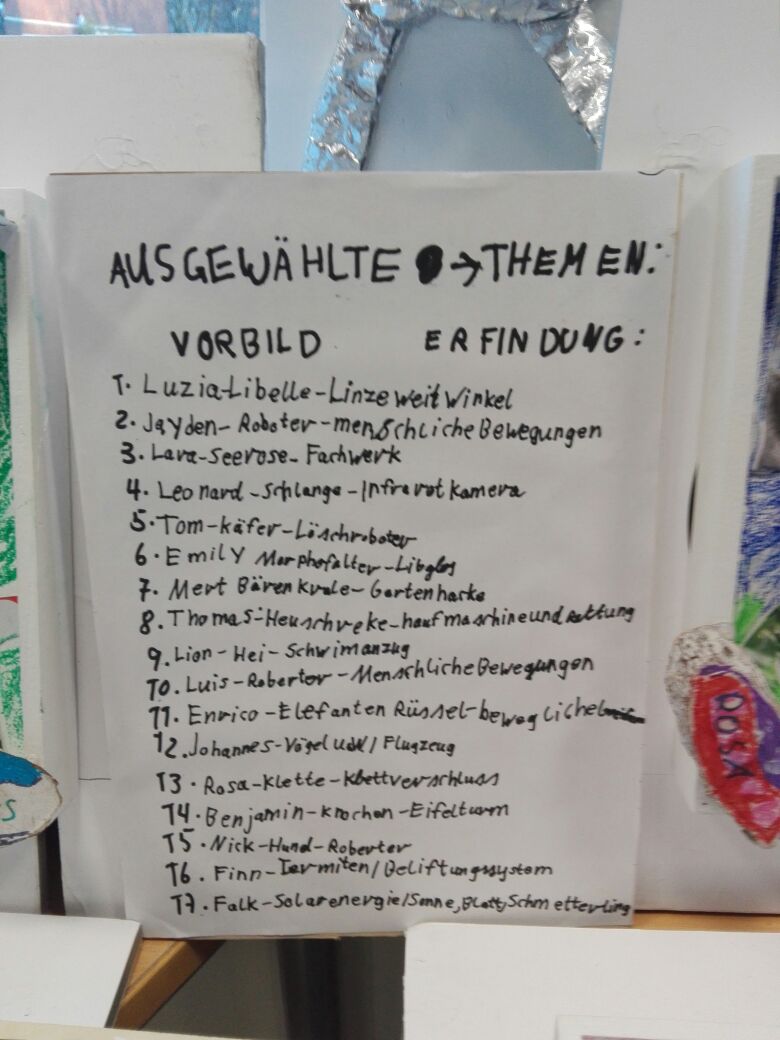 AUSGEWÄHLTE → THEMEN:
VORBILD ERFINDUNG:
1. Luzia-Libelle-Linze weit Winkel
2. Jayden-Roboter-menschliche Bewegungen
3. Lara-Seerose-Fachwerk
4. Leonard-Schlange-Infrarot kamera
5. Tom-käfer-Löschroboter
6. Emily Morphofalter-
7. Mert Bärenkrale-Gartenhacke
8. Thomas-Heuschreke- und Rettung
9. Lion-Hei-Schwimanzug
10. Luis-Roberter-Menschliche Bewegungen
11. Enrico-Elefanten Rüssel-bewegliche
12. Johannes-Vögel / Flugzeug
13. Rosa-Klette-Klettverschluss
14. Benjamin-knochen-Eifelturm
15. Nick-Hund-Roberter
16. Finn-Termiten/Beliftungssystem
17. Falk-Solarenergie/Sonne, Blatt, Schmetterling
ROSA